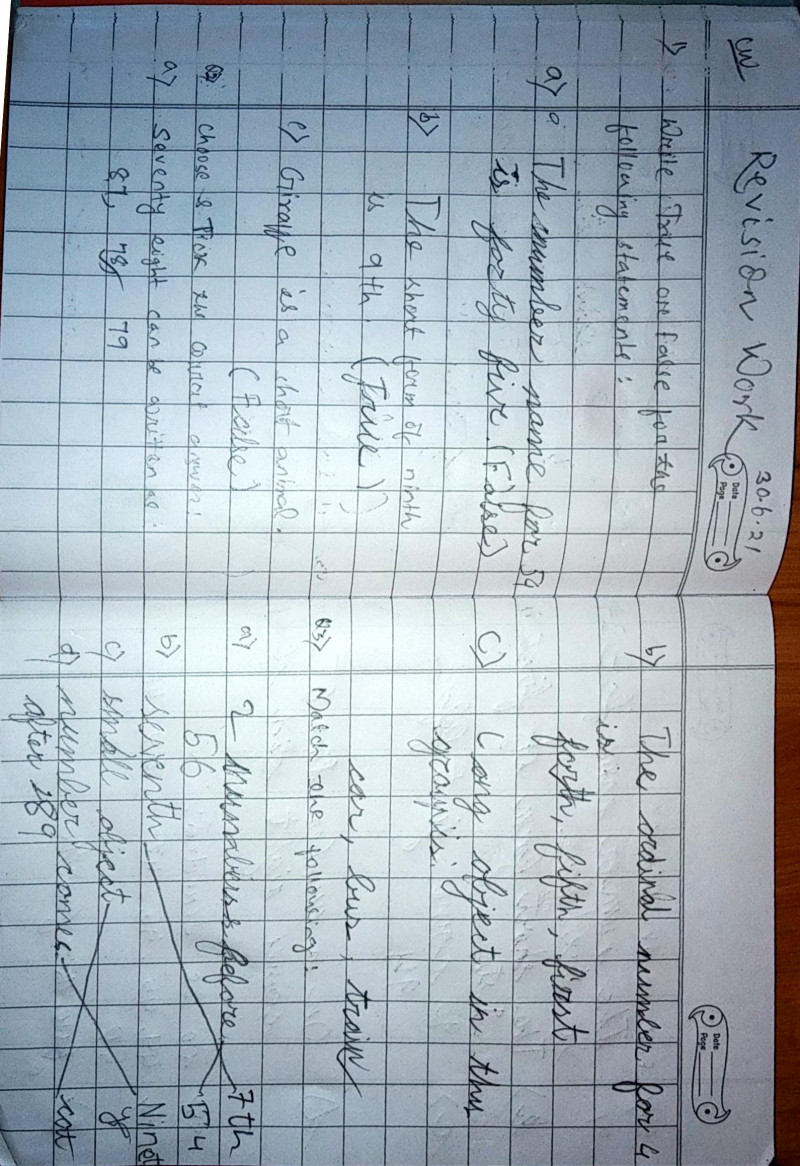 CW
Revision Work 30.6.21
Date
Page
1) Write True or False for the
following statements:
a) The number name for 54
is forty five. (False)
b) The short form of ninth
is 9th. (True)
c) Giraffe is a short animal.
(False)
Q2) Choose & Tick the correct answer:
a) Seventy eight can be written as:
87, 78, 79
Date
Page
b) The ordinal number for 4
is
forth, fifth, first
C) Long object in this
group is.
car, bus, train
Q3) Match the following:
a) 2 numbers before 7th
56 54
b) seventh
c) small object
d) number comes cat
after 289